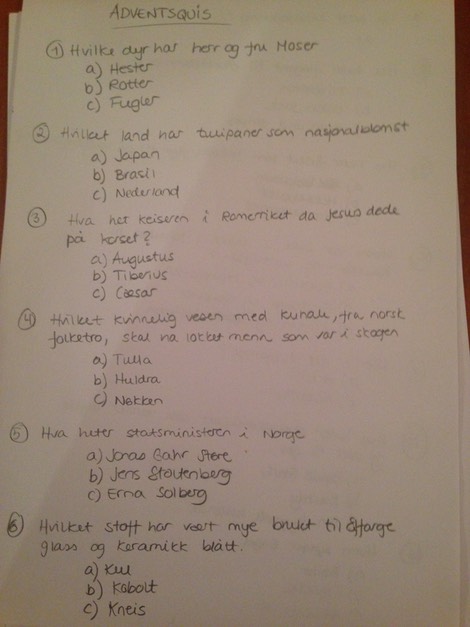 ADVENTSQUIS
① Hvilke dyr har herr og fru Moser
a) Hester
b) Rotter
c) Fugler
② Hvilket land har tulipaner som nasjonalblomst
a) Japan
b) Brasil
c) Nederland
③ Hva het keiseren i Romerriket da Jesus døde
på korset?
a) Augustus
b) Tiberius
c) Cæsar
④ Hvilket kvinnelig vesen med kuhale, fra norsk
folketro, skal ha lokket menn som var i skogen
a) Tulla
b) Huldra
c) Nøkken
⑤ Hva heter statsministeren i Norge
a) Jonas Gahr Støre
b) Jens Stoltenberg
c) Erna Solberg
⑥ Hvilket stoff har vært mye brukt til å farge
glass og keramikk blått.
a) Kull
b) Kobolt
c) Kneis